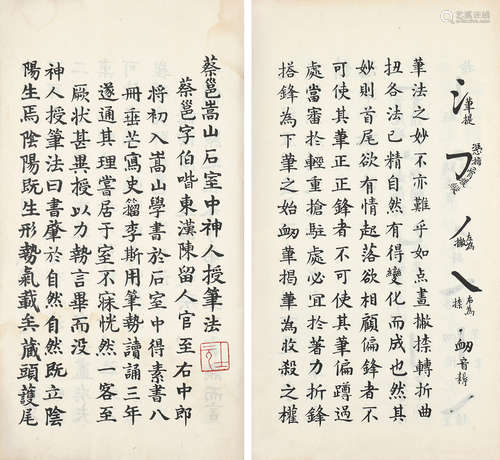 筆提
左為撇
右為捺
衂音耨
筆法之妙不亦難乎如點畫撇捺轉折曲
扭各法已精自然有得變化而成也然其
妙則首尾欲有情起落欲相顧偏鋒者不
可使其筆正正鋒者不可使其筆偏蹲過
處當審於輕重搶駐處必宜於著力折鋒
搭鋒為下筆之始衂筆揭筆為收殺之權
蔡邕嵩山石室中神人授筆法
蔡邕字伯喈東漢陳留人官至右中郎
將初入嵩山學書於石室中得素書八
冊垂芒寫史籀李斯用筆勢讀誦三年
遂通其理嘗居于室不寐恍然一客至
厥狀甚異授以力勢言畢而没
神人授筆法曰書肇於自然自然既立陰
陽生焉陰陽既生形勢氣載矣藏頭護尾